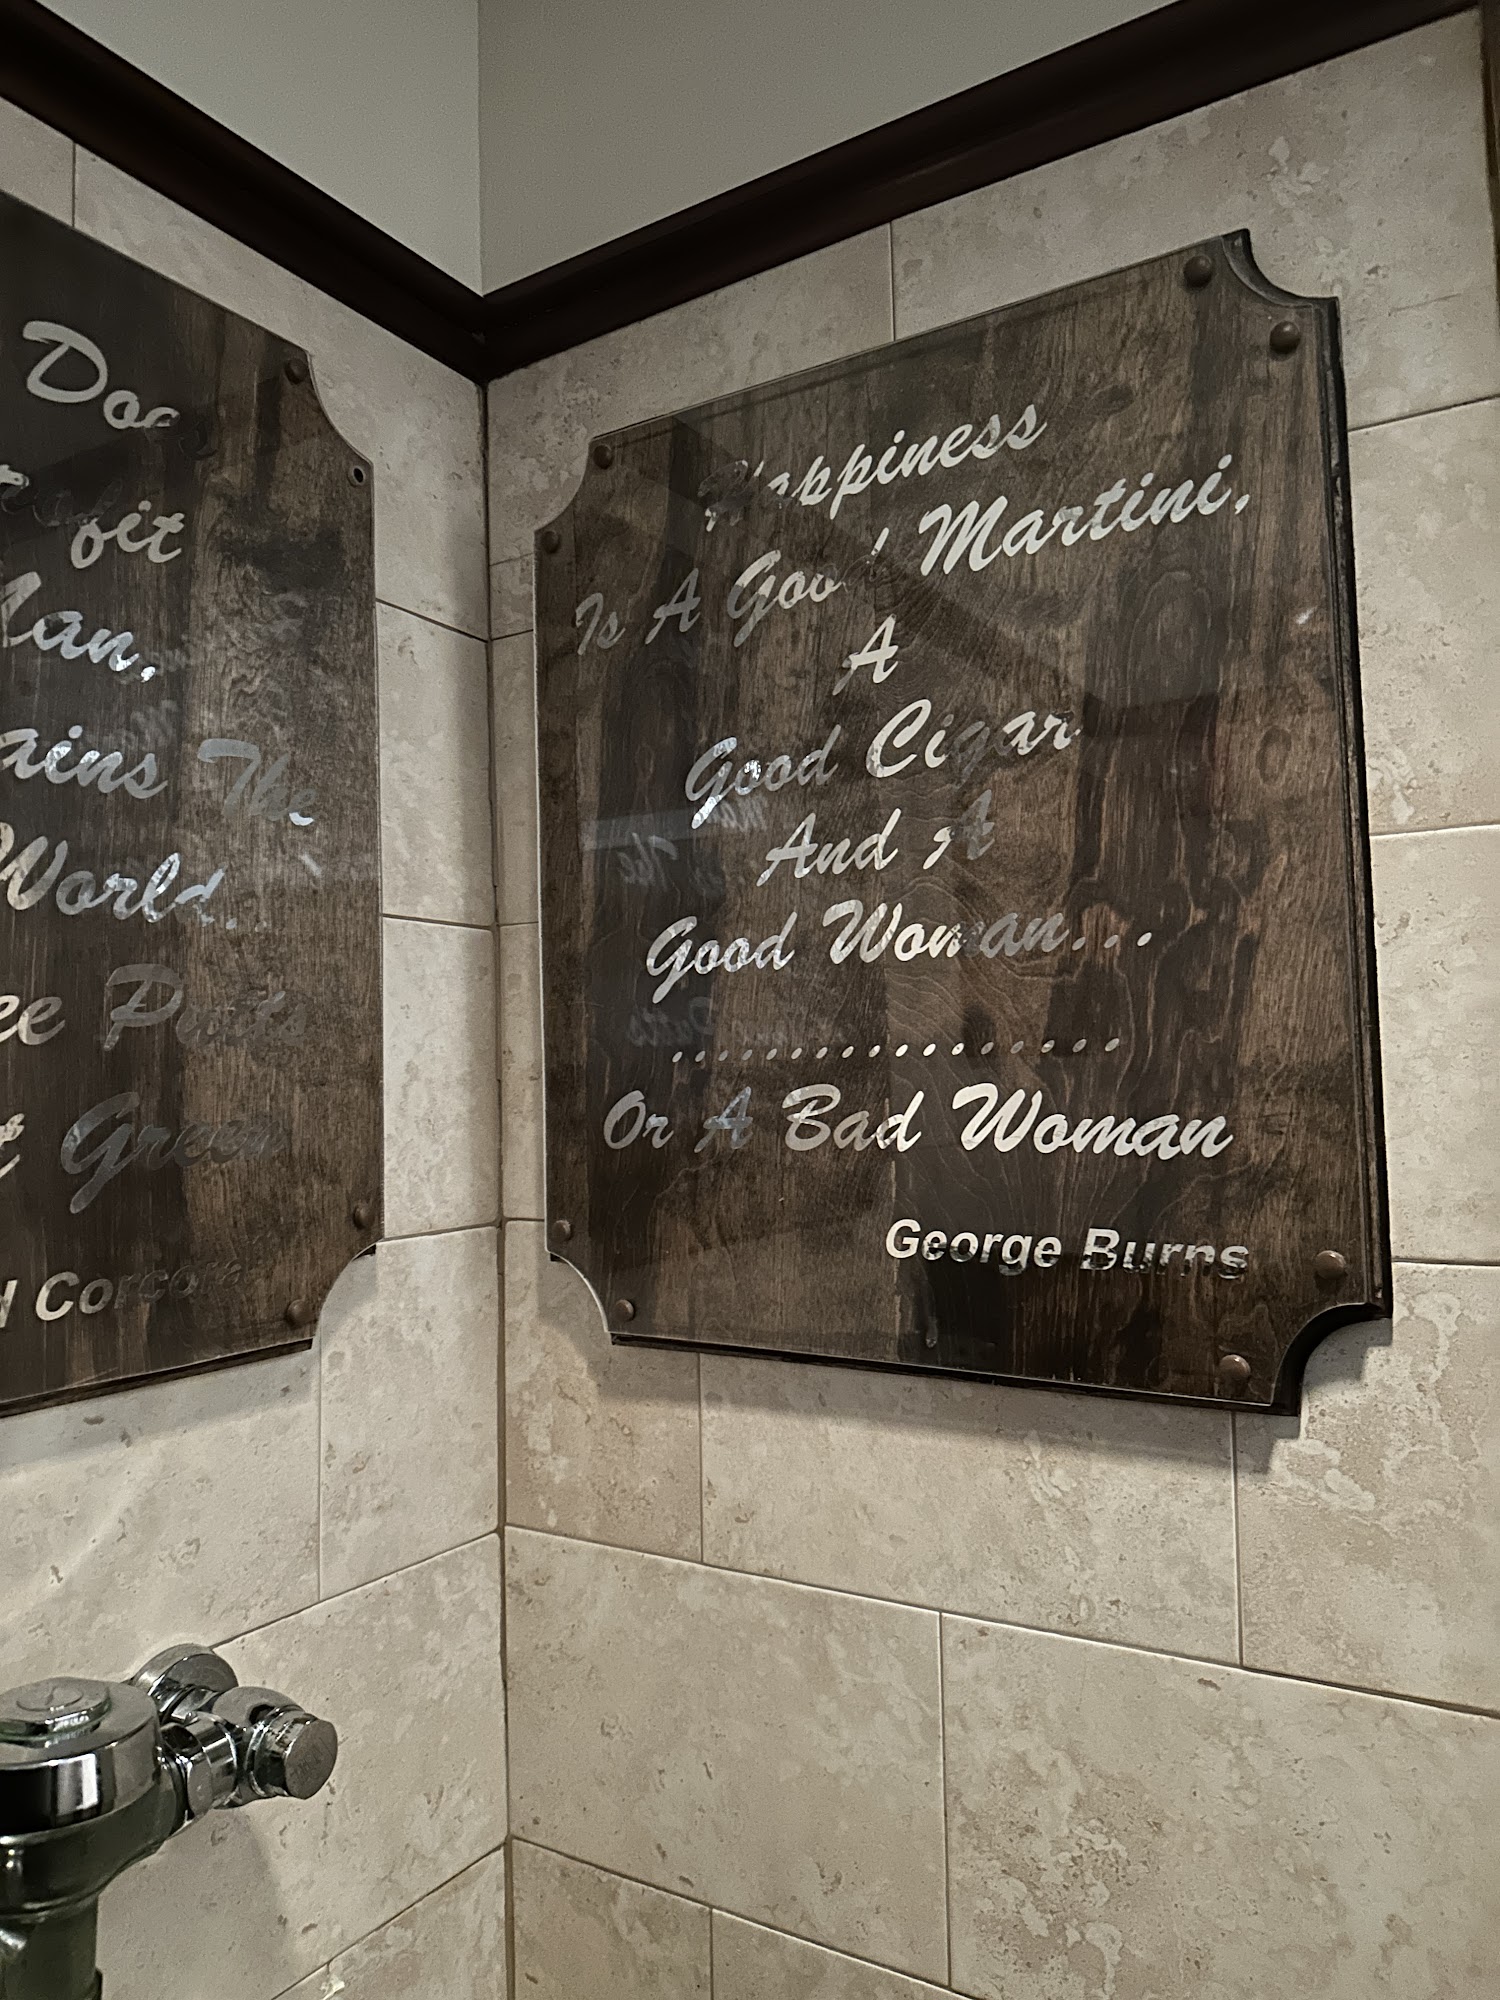 Doe
oit
Man,
ains The
World...
ee Putts
Green
Corcoran
Happiness
Is A Good Martini,
A
Good Cigar
And A
Good Woman...
...................
Or A Bad Woman
George Burns